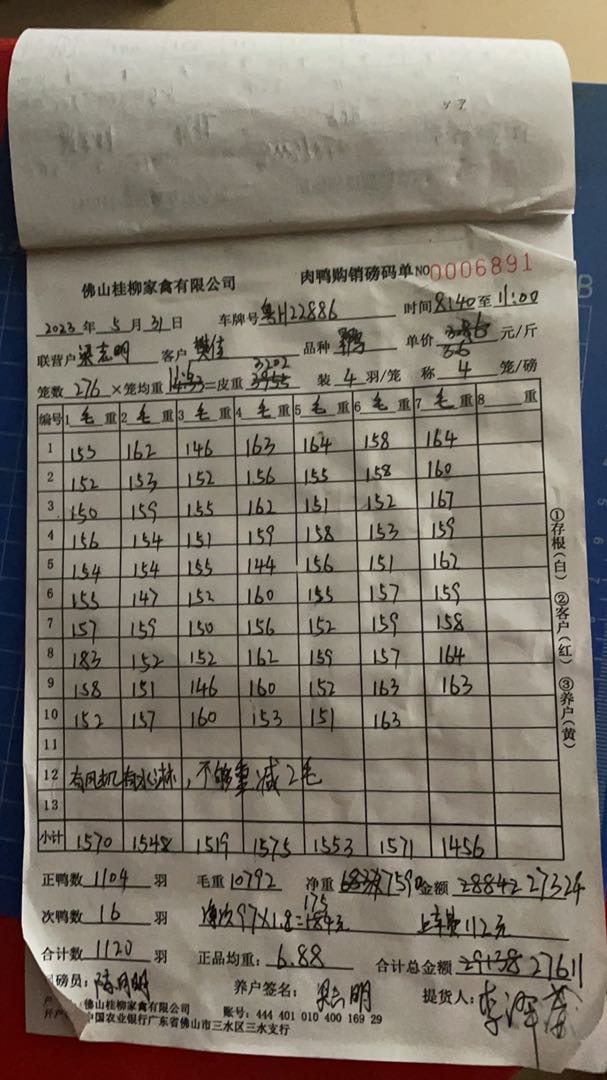 佛山桂柳家禽有限公司 肉鸭购销磅码单 NO 0006891
2023 年 5 月 31 日 车牌号 粤H22886 时间 8:40 至 11:00
联营户 梁志明 客户 樊佳 品种 单价 元/斤
3202
笼数 276 ×笼均重 =皮重 3955 装 4 羽/笼 称 4 笼/磅
编号 1 毛 重 2 毛 重 3 毛 重 4 毛 重 5 毛 重 6 毛 重 7 毛 重 8 重
1 155 162 146 163 164 158 164
2 152 153 152 156 155 158 160
3 150 159 155 162 151 152 167
4 156 154 151 159 158 153 159
5 154 154 155 144 156 151 162
6 155 147 152 160 155 157 159
7 157 159 150 156 152 159 158
8 183 152 152 162 159 157 164
9 158 151 146 160 152 163 163
10 152 157 160 153 151 163
11
12 有风机有水淋，不够重减2毛
13
小计 1570 1548 1519 1575 1553 1571 1456
①存根(白) ②客户(红) ③养户(黄)
正鸭数 1104 羽 毛重 10792 净重 7590 金额 28842 27324
175
次鸭数 16 羽 净次97×1.8=184元 上车费112元
合计数 1120 羽 正品均重: 6.88 合计总金额 29138 27611
磅员: 养户签名: 梁志明 提货人:
佛山桂柳家禽有限公司 账号: 444 401 010 400 169 29
中国农业银行广东省佛山市三水区三水支行